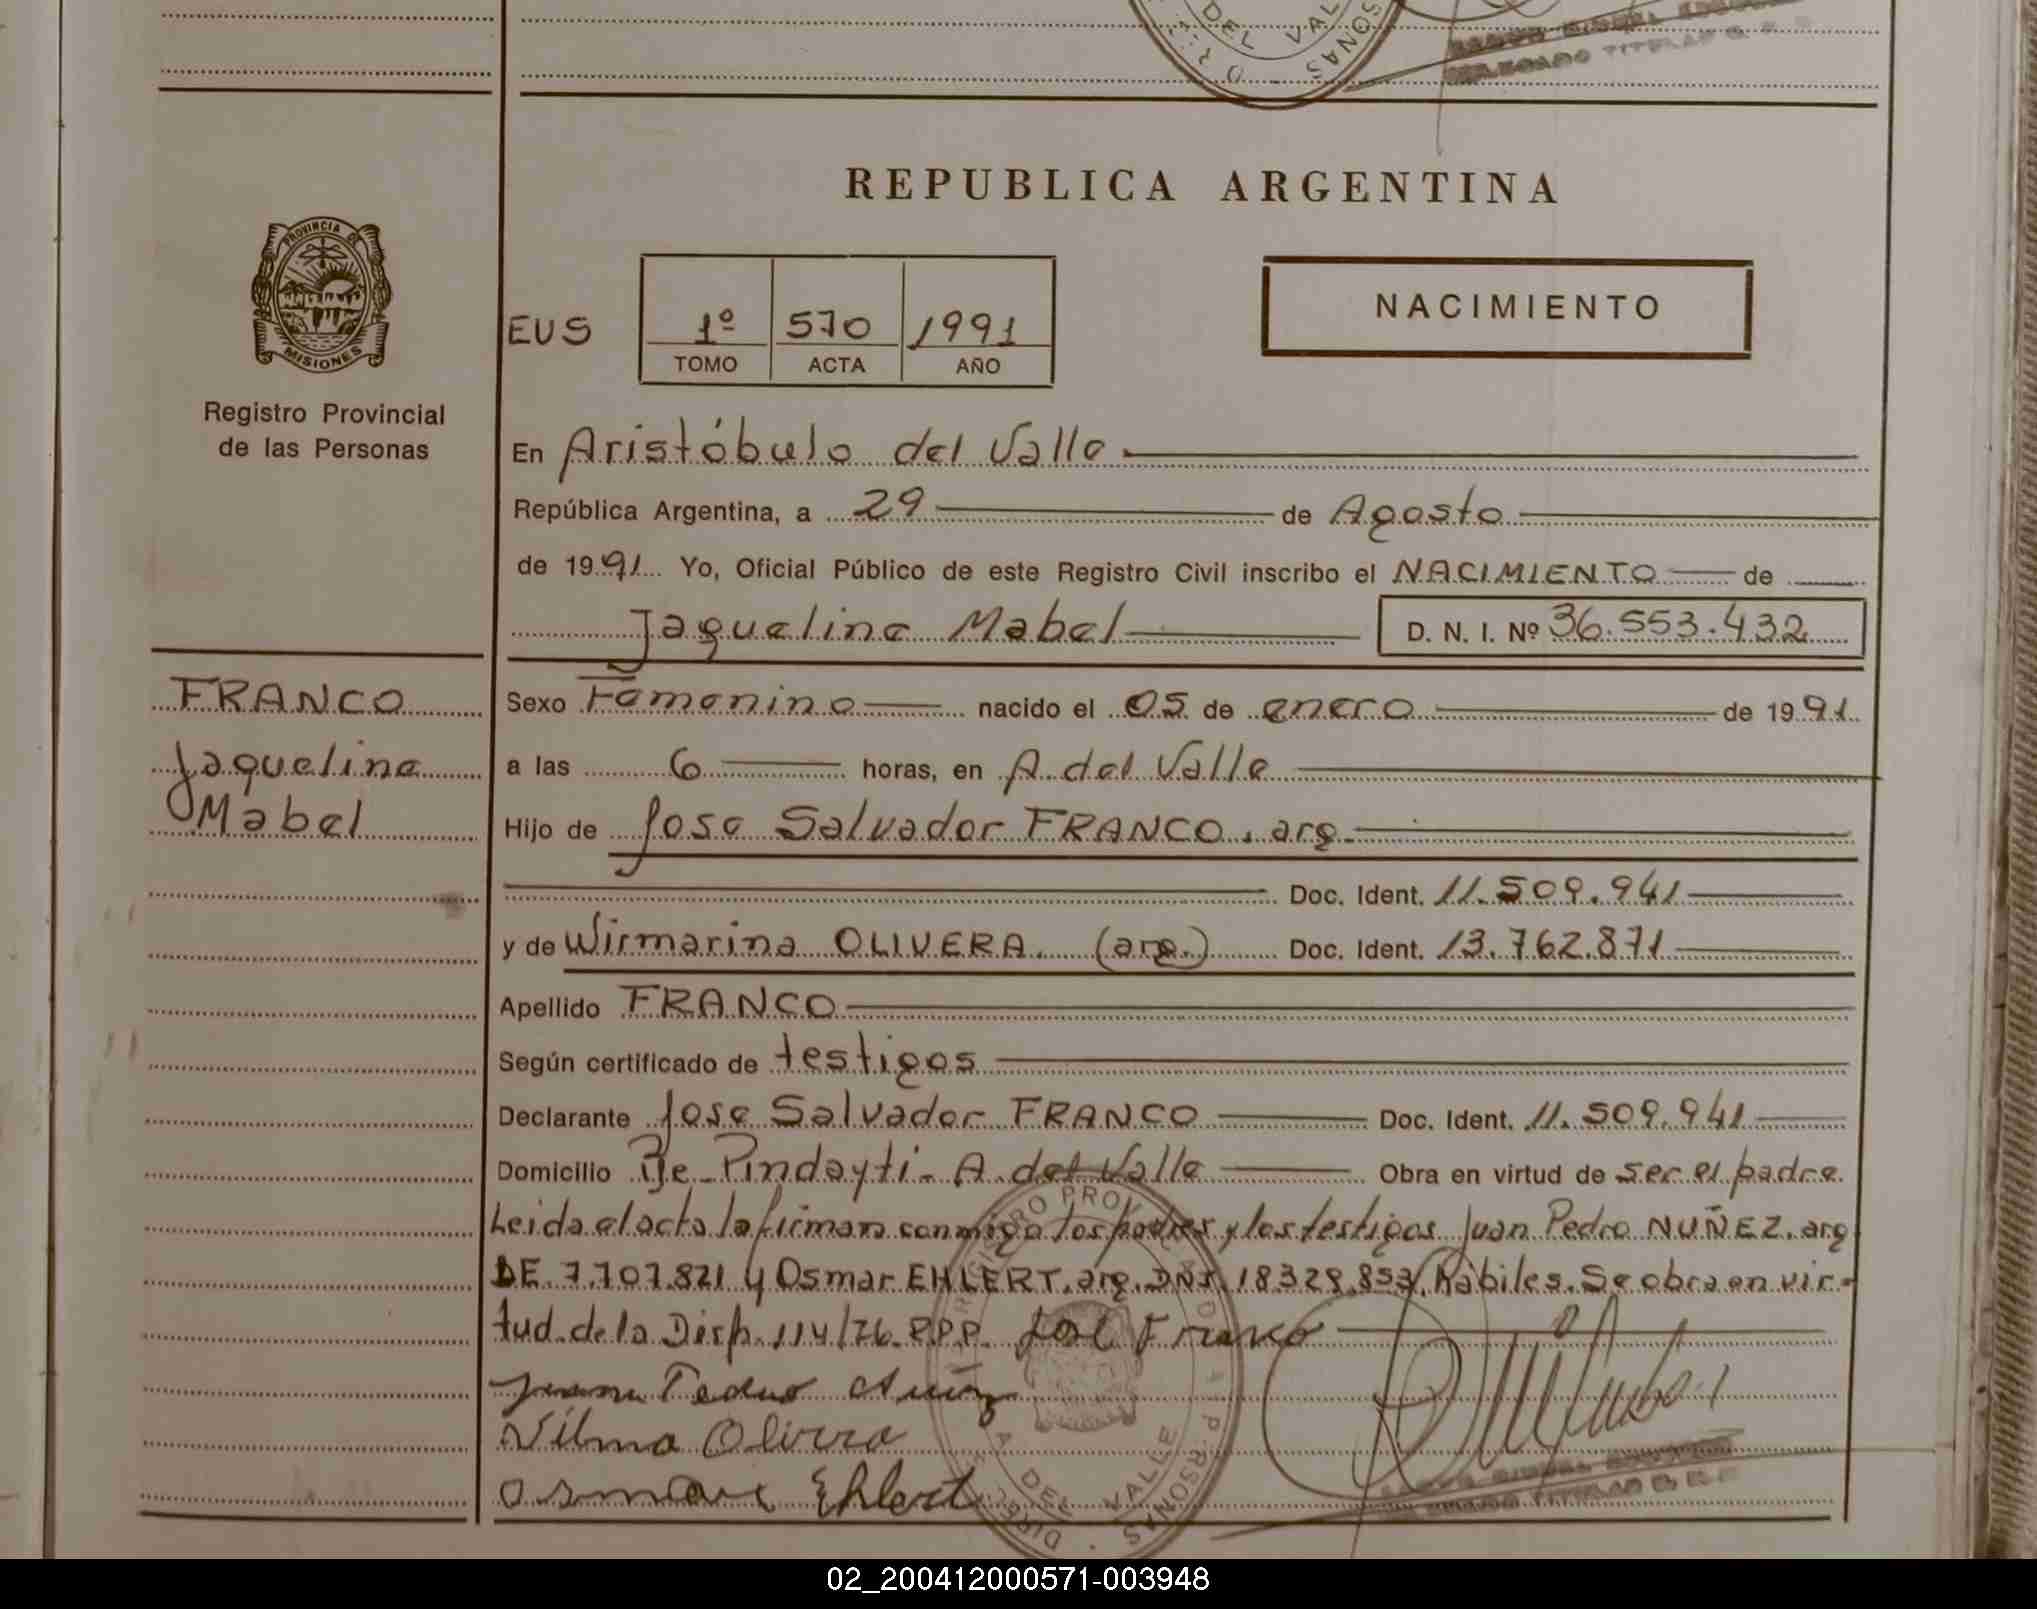 DEL VALLE
REPUBLICA ARGENTINA
PROVINCIA DE
MISIONES
Registro Provincial
de las Personas
EUS
1º 570 1991
TOMO ACTA AÑO
NACIMIENTO
En Aristóbulo del Valle
República Argentina, a 29 de Agosto
de 1991 Yo, Oficial Público de este Registro Civil inscribo el NACIMIENTO de
Jaqueline Mabel D. N. I. Nº 36.553.432
FRANCO
Jaqueline
Mabel
Sexo Femenino nacido el 05 de enero de 1991
a las 6 horas, en A. del Valle
Hijo de Jose Salvador FRANCO, arg.
Doc. Ident. 11.509.941
y de Wirmarina OLIVERA. (arg.) Doc. Ident. 13.762.871
Apellido FRANCO
Según certificado de testigos
Declarante Jose Salvador FRANCO Doc. Ident. 11.509.941
Domicilio Pje. Pindayti - A. del Valle Obra en virtud de ser el padre.
Leida el acta la firman conmigo los padres y los testigos Juan Pedro NUÑEZ, arg
DE 7.707.821 y Osmar EHLERT, arg. DNI. 18.329.853, hábiles. Se obra en vir-
tud de la Disp. 114/76 R.P.P. José Franco
Juan Pedro Nuñez
Vilma Olivera
Osmar Ehlert
DEL VALLE
TITULAR
02_200412000571-003948